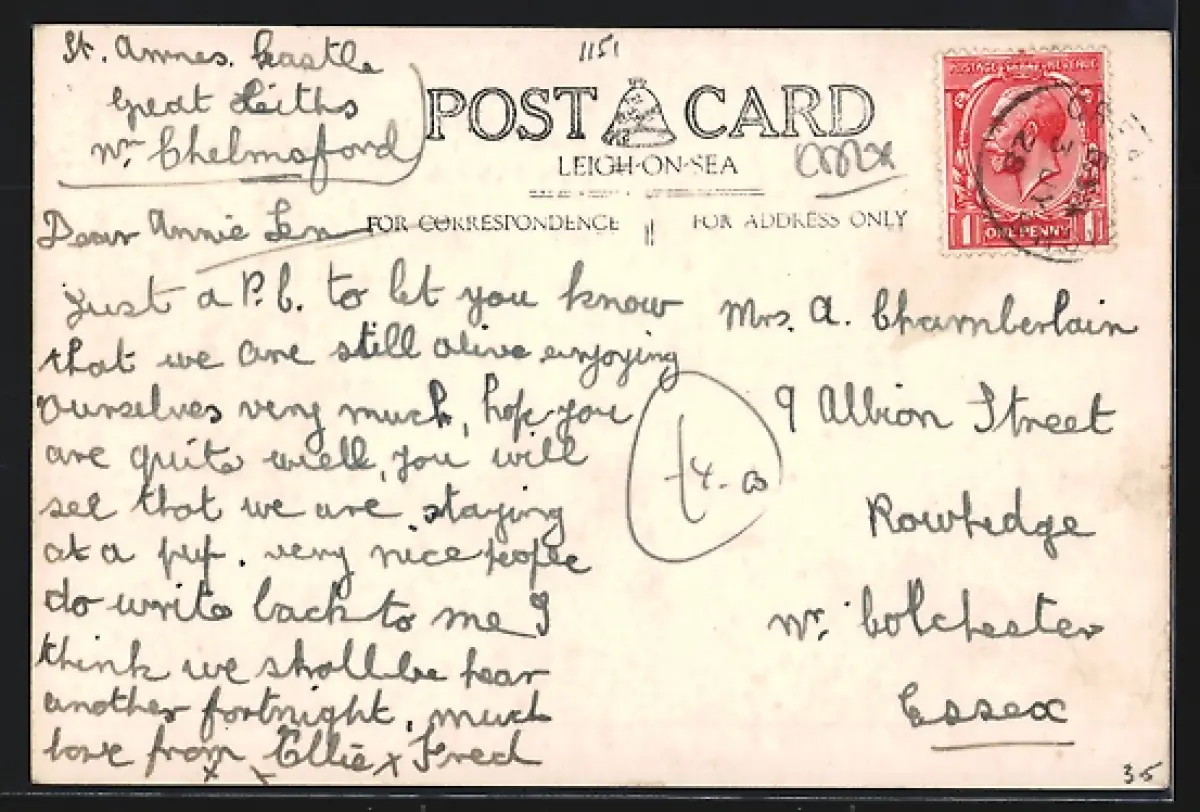 St. Annes. Castle
Great Leiths
Nr. Chelmsford
1151
POST CARD
LEIGH-ON-SEA
FOR CORRESPONDENCE
FOR ADDRESS ONLY
POSTAGE REVENUE
1 ONE PENNY 1
Dear Annie Len
Just a P.C. to let you know
that we are still alive enjoying
ourselves very much, hope you
are quite well, you will
see that we are staying
at a pup. very nice people
do write back to me I
think we shall be hear
another fortnight, much
love from Ellie x Fred
x x
Mrs. A. Chamberlain
9 Albion Street
Rowhedge
Nr. Colchester
Essex
35